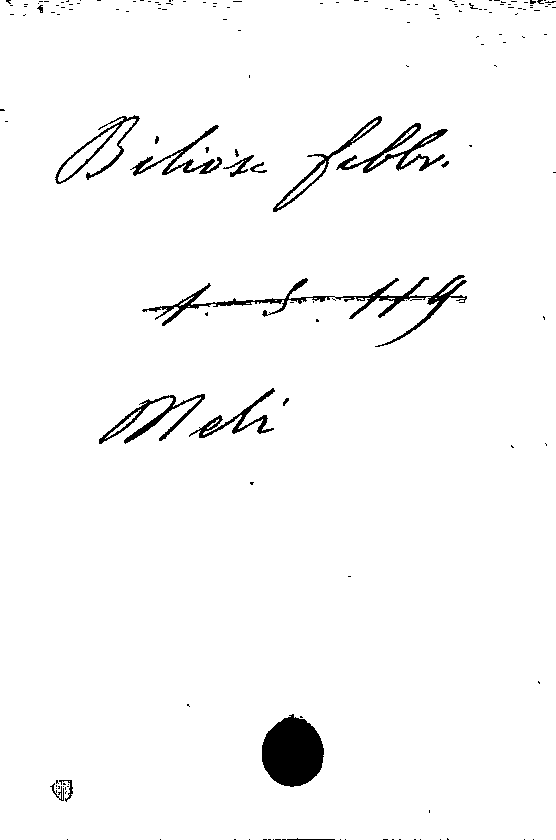 Biliöse febbr.
1. S. 119
Meli